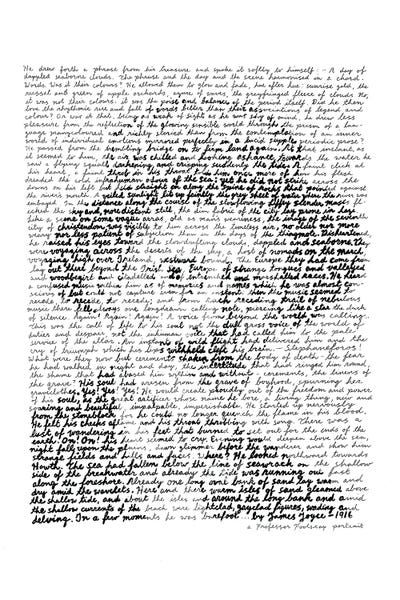 He drew forth a phrase from his treasure and spoke it softly to himself: — A day of
dappled seaborne clouds. The phrase and the day and the scene harmonised in a chord.
Words. Was it their colours? He allowed them to glow and fade, hue after hue: sunrise gold, the
russet and green of apple orchards, azure of waves, the greyfringed fleece of clouds. No,
it was not their colours: it was the poise and balance of the period itself. Did he then
love the rhythmic rise and fall of words better than their associations of legend and
colour? Or was it that, being as weak of sight as he was shy of mind, he drew less
pleasure from the reflection of the glowing sensible world through the prism of a lan-
guage manycoloured and richly storied than from the contemplation of an inner
world of individual emotions mirrored perfectly in a lucid supple periodic prose?
He passed from the trembling bridge on to firm land again. At that instant, as
it seemed to him, the air was chilled and looking askance towards the water he
saw a flying squall darkening and crisping suddenly the tide. A faint click at
his heart, a faint throb in his throat told him once more of how his flesh
dreaded the cold infrahuman odour of the sea: yet he did not strike across the
downs on his left but held straight on along the spine of rocks that pointed against
the river's mouth. A veiled sunlight lit up faintly the grey sheet of water where the river was
embayed. In the distance along the course of the slowflowing Liffey slender masts fl-
ecked the sky and, more distant still, the dim fabric of the city lay prone in haze.
like a scene on some vague arras, old as man's weariness, the image of the seventh
city of christendom was visible to him across the timeless air, no older nor more
weary nor less patient of subjection than in the days of the thingmote. Disheartened,
he raised his eyes towards the slowdrifting clouds, dappled and seaborne. They
were voyaging across the deserts of the sky, a host of nomads on the march,
voyaging high over Ireland, westward bound. The Europe they had come from
lay out there beyond the Irish Sea, Europe of strange tongues and valleyed
and woodbegirt and citadelled and of entrenched and marshalled races. He heard
a confused music within him as of memories and names which he was almost con-
scious of but could not capture even for an instant; then the music seemed to
recede, to recede, to recede; and from each receding trail of nebulous
music there fell always one longdrawn calling note, piercing like a star the dusk
of silence. Again! Again! Again! A voice from beyond the world was calling.
This was the call of life to his soul not the dull gross voice of the world of
duties and despair, not the inhuman voice that had called him to the pale
service of the altar. An instant of wild flight had delivered him and the
cry of triumph which his lips withheld cleft his brain. — Stephaneforos!
What were they now but cerements shaken from the body of death - the fear
he had walked in night and day, the incertitude that had ringed him round,
the shame that had abased him within and without - cerements, the linens of
the grave? His soul had arisen from the grave of boyhood, spurning her
graveclothes. Yes! Yes! Yes! He would create proudly out of the freedom and power
of his soul, as the great artificer whose name he bore, a living thing, new and
soaring and beautiful, impalpable, imperishable. He started up nervously
from the stoneblock for he could no longer quench the flame in his blood.
He felt his cheeks aflame and his throat throbbing with song. There was a
lust of wandering in his feet that burned to set out for the ends of the
earth. On! On! his heart seemed to cry. Evening would deepen above the sea,
night fall upon the plains, dawn glimmer before the wanderer and show him
strange fields and hills and faces. Where? He looked northward towards
Howth. The sea had fallen below the line of seawrack on the shallow
side of the breakwater and already the tide was running out fast
along the foreshore. Already one long oval bank of sand lay warm and
dry amid the wavelets. Here and there warm isles of sand gleamed above
the shallow tide, and about the isles and around the long bank and amid
the shallow currents of the beach were lightclad, gayclad figures, wading and
delving. In a few moments he was barefoot... by James Joyce - 1916
a Professor Foolscap portrait